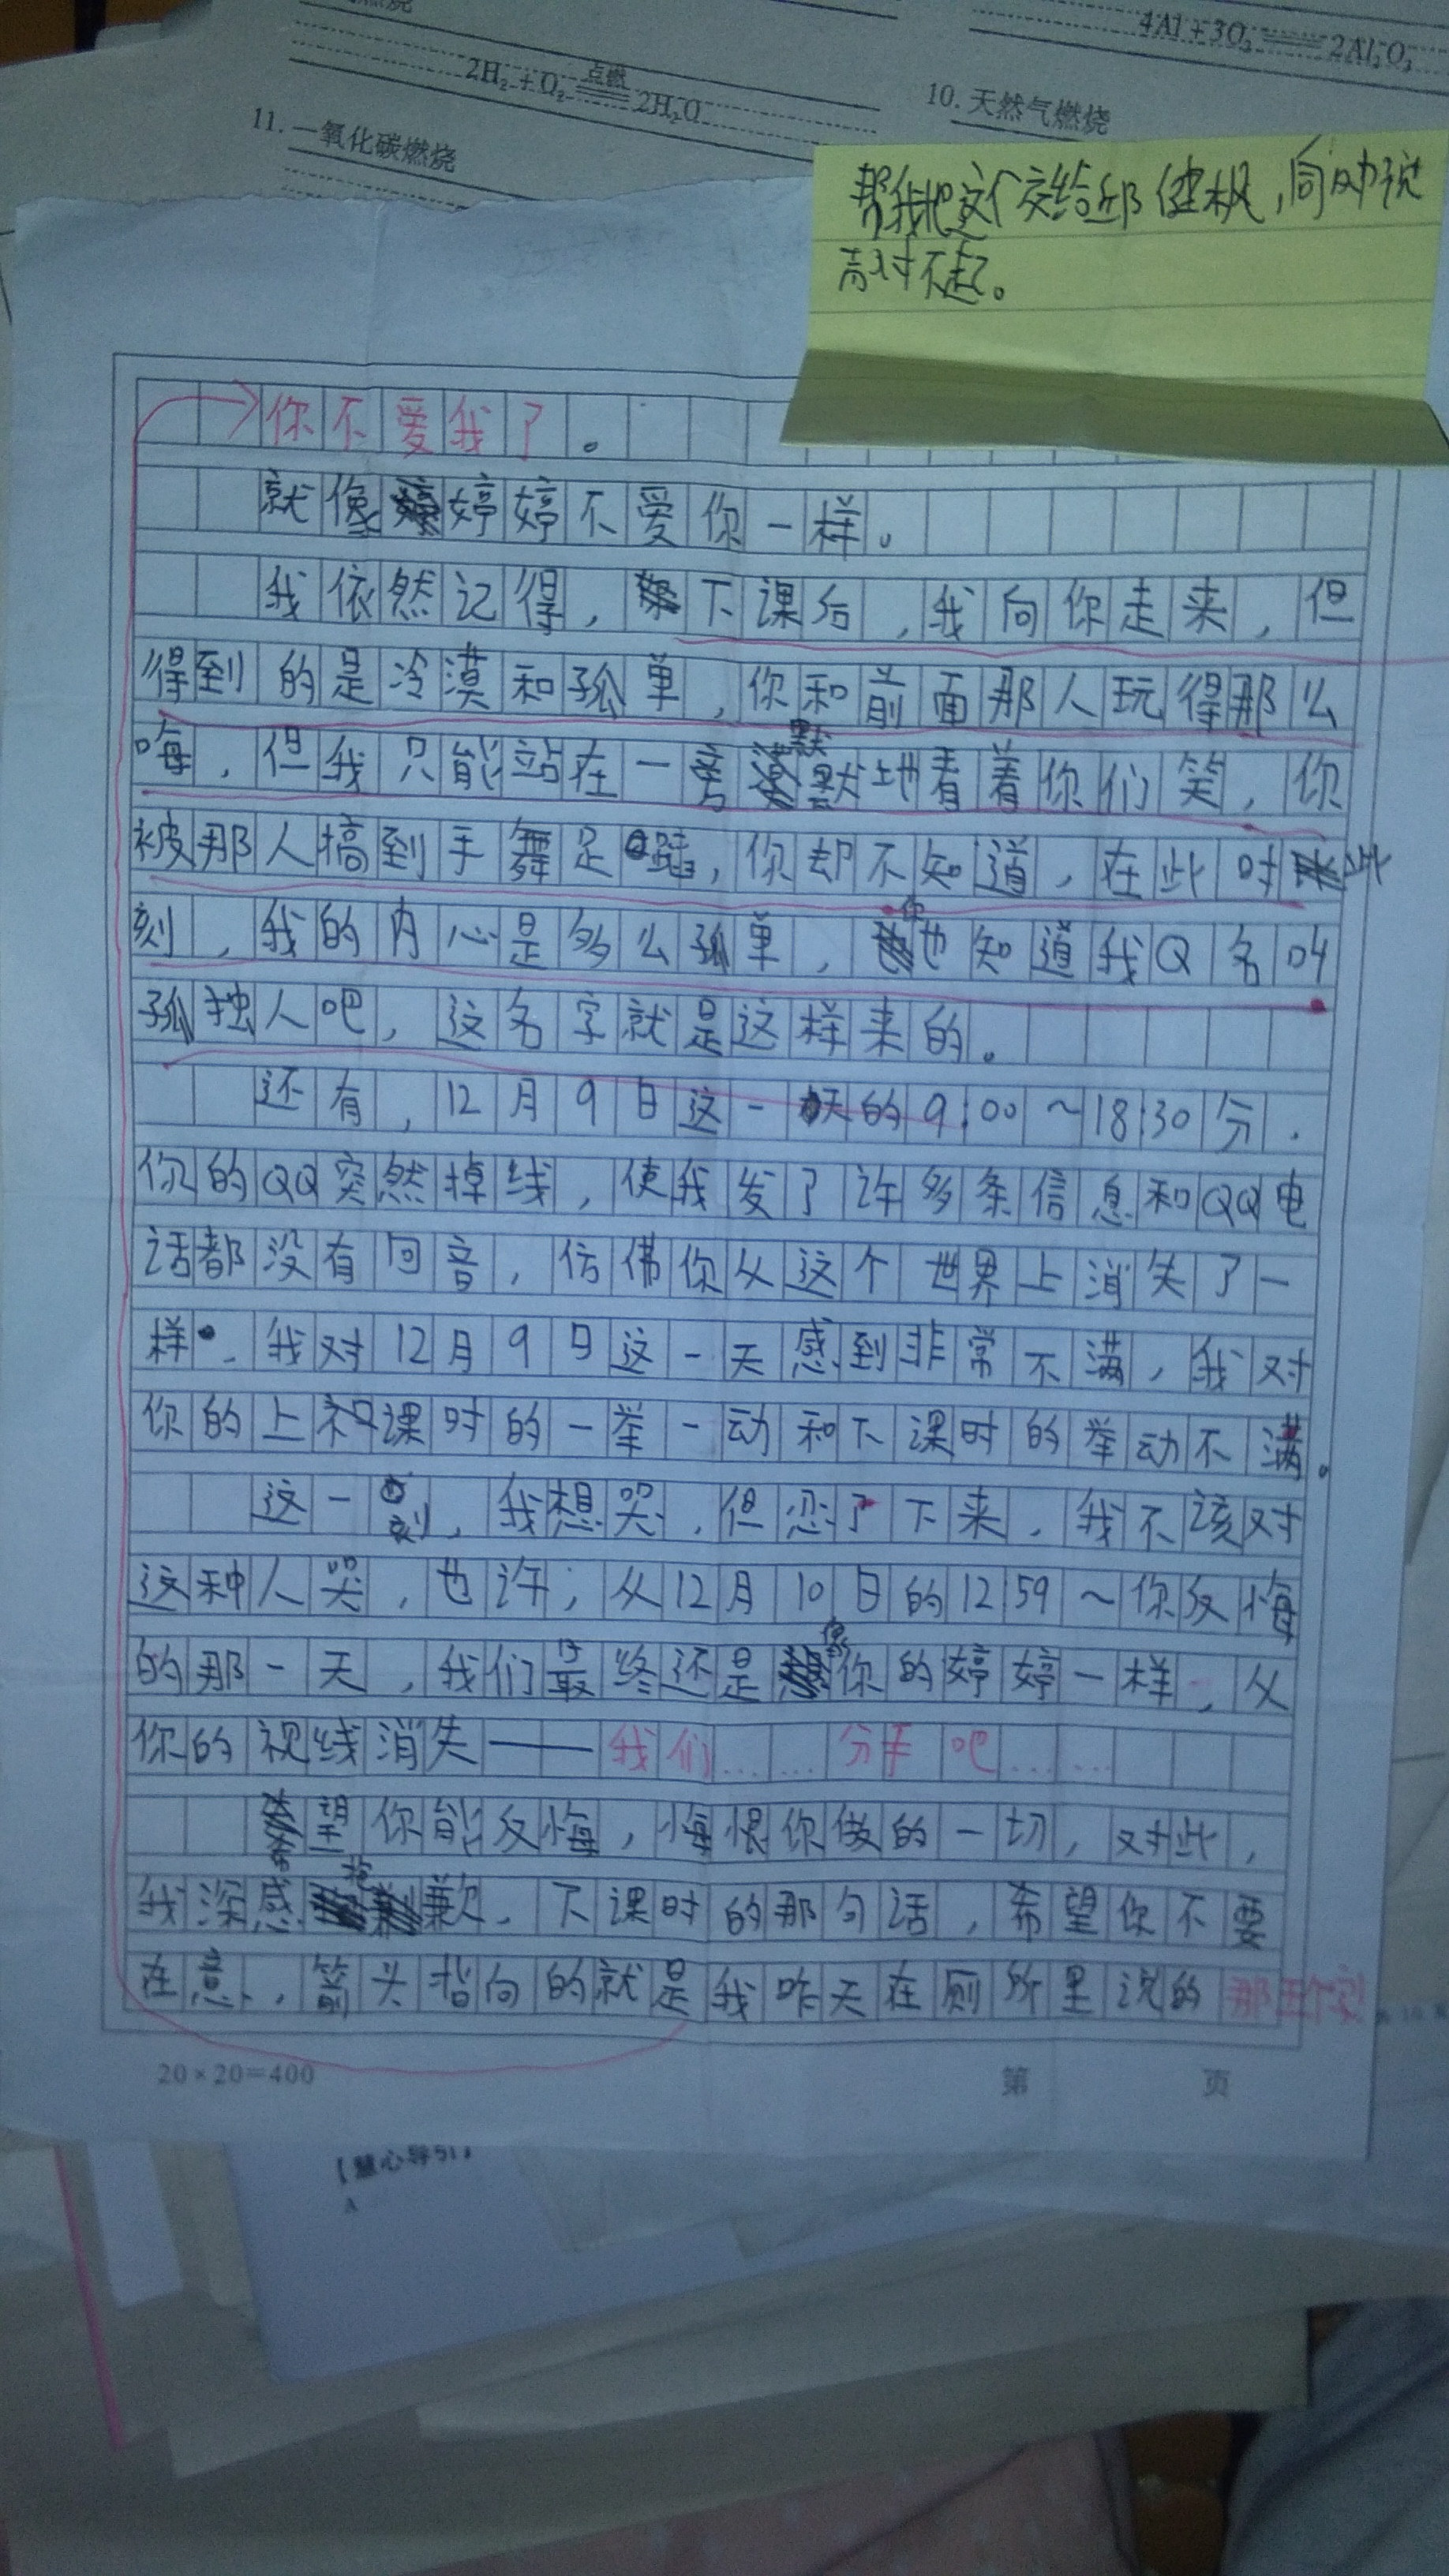 燃烧
4Al + 3O₂ ═══ 2Al₂O₃
2H₂ + O₂ ═点燃═ 2H₂O
10. 天然气燃烧
11. 一氧化碳燃烧
帮我把这个交给邱健枫,同时说
声对不起。
你不爱我了。
就像婷婷不爱你一样。
我依然记得,下课后,我向你走来,但
得到的是冷漠和孤单,你和前面那人玩得那么
嗨,但我只能站在一旁默默地看着你们笑,你
被那人搞到手舞足蹈,你却不知道,在此时此
刻,我的内心是多么孤单,你也知道我Q名叫
孤独人吧,这名字就是这样来的。
还有,12月9日这一天的9:00~18:30分.
你的QQ突然掉线,使我发了许多条信息和QQ电
话都没有回音,仿佛你从这个世界上消失了一
样。我对12月9日这一天感到非常不满,我对
你的上课时的一举一动和下课时的举动不满。
这一刻,我想哭,但忍了下来,我不该对
这种人哭,也许;从12月10日的12:59~你反悔
的那一天,我们最终还是像你的婷婷一样,从
你的视线消失——我们……分手吧……
希望你能反悔,悔恨你做的一切,对此,
我深感抱歉,下课时的那句话,希望你不要
在意,箭头指向的就是我昨天在厕所里说的那五个字
20×20=400
第 页
【慧心导引】
A